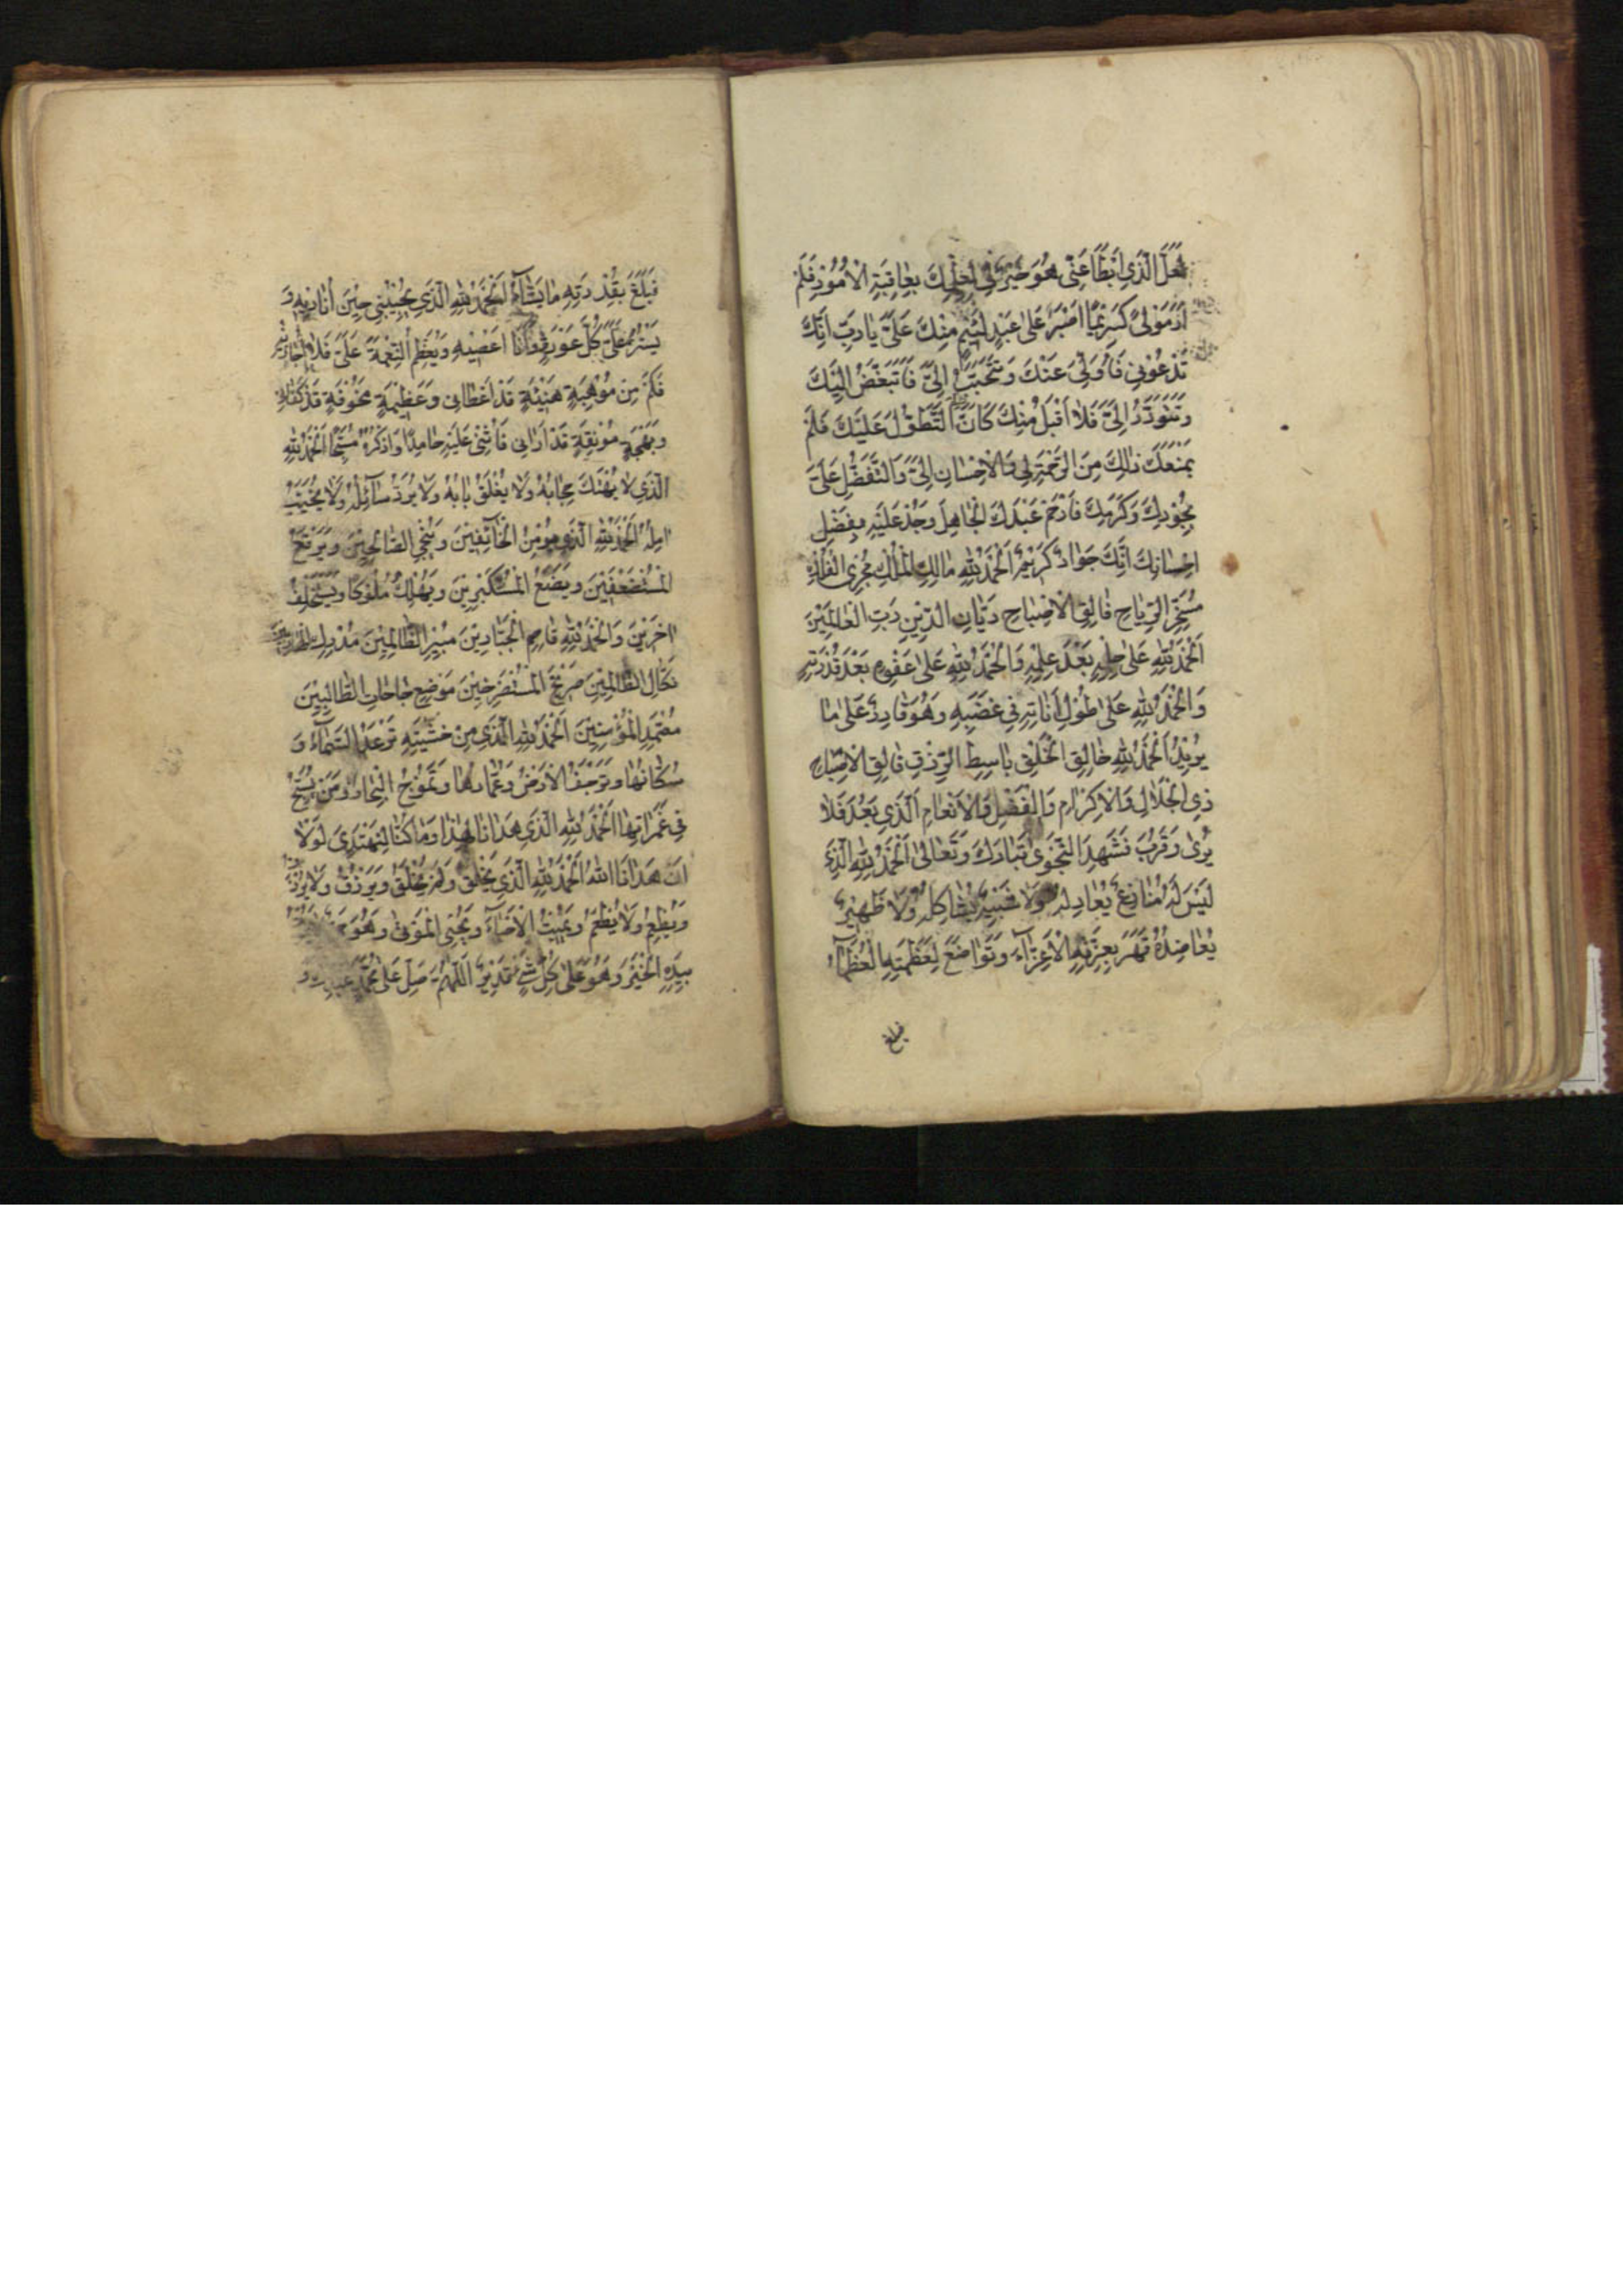 لَعَلَّ الَّذِي اَبْطَأَ عَنّى هُوَ خَيْرٌ لِى لِعِلْمِكَ بِعاقِبَةِ الْاُمُورِ فَلَمْ
اَرَ مَوْلىً كَرِيمًا اَصْبَرَ عَلى عَبْدٍ لَئِيمٍ مِنْكَ عَلَىَّ يا رَبِّ اِنَّكَ
تَدْعُونِى فَاُوَلِّى عَنْكَ وَتَتَحَبَّبُ اِلَىَّ فَاَتَبَغَّضُ اِلَيْكَ
وَتَتَوَدَّدُ اِلَىَّ فَلا اَقْبَلُ مِنْكَ كَاَنَّ التَّطَوُّلَ عَلَيْكَ فَلَمْ
يَمْنَعْكَ ذالِكَ مِنَ الرَّحْمَةِ لِى وَالْاِحْسانِ اِلَىَّ وَالتَّفَضُّلِ عَلَىَّ
بِجُودِكَ وَكَرَمِكَ فَارْحَمْ عَبْدَكَ الْجاهِلَ وَجُدْ عَلَيْهِ بِفَضْلِ
اِحْسانِكَ اِنَّكَ جَوادٌ كَرِيمٌ اَلْحَمْدُ لِلّٰهِ مالِكِ الْمُلْكِ مُجْرِى الْفُلْكِ
مُسَخِّرِ الرِّياحِ فالِقِ الْاِصْباحِ دَيّانِ الدِّينِ رَبِّ الْعالَمِينَ
اَلْحَمْدُ لِلّٰهِ عَلى حِلْمِهِ بَعْدَ عِلْمِهِ وَالْحَمْدُ لِلّٰهِ عَلى عَفْوِهِ بَعْدَ قُدْرَتِهِ
وَالْحَمْدُ لِلّٰهِ عَلى طُولِ اَناتِهِ فِى غَضَبِهِ وَهُوَ قادِرٌ عَلى ما
يُرِيدُ اَلْحَمْدُ لِلّٰهِ خالِقِ الْخَلْقِ باسِطِ الرِّزْقِ فالِقِ الْاِصْباحِ
ذِى الْجَلالِ وَالْاِكْرامِ وَالْفَضْلِ وَالْاِنْعامِ اَلَّذِى بَعُدَ فَلا
يُرى وَقَرُبَ فَشَهِدَ النَّجْوى تَبارَكَ وَتَعالى اَلْحَمْدُ لِلّٰهِ الَّذِى
لَيْسَ لَهُ مُنازِعٌ يُعادِلُهُ وَلا شَبِيهٌ يُشاكِلُهُ وَلا ظَهِيرٌ
يُعاضِدُهُ قَهَرَ بِعِزَّتِهِ الْاَعِزّاءَ وَتَواضَعَ لِعَظَمَتِهِ الْعُظَماءُ
فبلغ
فَبَلَغَ بِقُدْرَتِهِ ما يَشاءُ اَلْحَمْدُ لِلّٰهِ الَّذِى يُجِيبُنِى حِينَ اُنادِيهِ وَ
يَسْتُرُ عَلَىَّ كُلَّ عَوْرَةٍ وَاَنَا اَعْصِيهِ وَيُعَظِّمُ النِّعْمَةَ عَلَىَّ فَلا اُجازِيهِ
فَكَمْ مِنْ مَوْهِبَةٍ هَنِيئَةٍ قَدْ اَعْطانِى وَعَظِيمَةٍ مَخُوفَةٍ قَدْ كَفانِى
وَبَهْجَةٍ مُونِقَةٍ قَدْ اَرانِى فَاُثْنِى عَلَيْهِ حامِدًا وَاَذْكُرُهُ مُسَبِّحًا اَلْحَمْدُ لِلّٰهِ
الَّذِى لا يُهْتَكُ حِجابُهُ وَلا يُغْلَقُ بابُهُ وَلا يُرَدُّ سائِلُهُ وَلا يُخَيَّبُ
امِلُهُ اَلْحَمْدُ لِلّٰهِ الَّذِى يُؤْمِنُ الْخائِفِينَ وَيُنْجِى الصّالِحِينَ وَيَرْفَعُ
الْمُسْتَضْعَفِينَ وَيَضَعُ الْمُسْتَكْبِرِينَ وَيُهْلِكُ مُلُوكًا وَيَسْتَخْلِفُ
اخَرِينَ وَالْحَمْدُ لِلّٰهِ قاصِمِ الْجَبّارِينَ مُبِيرِ الظّالِمِينَ مُدْرِكِ الْهارِبِينَ
نَكالِ الظّالِمِينَ صَرِيخِ الْمُسْتَصْرِخِينَ مَوْضِعِ حاجاتِ الطّالِبِينَ
مُعْتَمَدِ الْمُؤْمِنِينَ اَلْحَمْدُ لِلّٰهِ الَّذِى مِنْ خَشْيَتِهِ تَرْعَدُ السَّماءُ وَ
سُكّانُها وَتَرْجُفُ الْاَرْضُ وَعُمّارُها وَتَمُوجُ الْبِحارُ وَمَنْ يَسْبَحُ
فِى غَمَراتِها اَلْحَمْدُ لِلّٰهِ الَّذِى هَدانا لِهذا وَما كُنّا لِنَهْتَدِىَ لَوْلا
اَنْ هَدانَا اللّٰهُ اَلْحَمْدُ لِلّٰهِ الَّذِى يَخْلُقُ وَلَمْ يُخْلَقْ وَيَرْزُقُ وَلا يُرْزَقُ
وَيُطْعِمُ وَلا يُطْعَمُ وَيُمِيتُ الْاَحْياءَ وَيُحْيِى الْمَوْتى وَهُوَ حَىٌّ لا يَمُوتُ
بِيَدِهِ الْخَيْرُ وَهُوَ عَلى كُلِّ شَىْءٍ قَدِيرٌ اَللّٰهُمَّ صَلِّ عَلى مُحَمَّدٍ عَبْدِكَ وَ